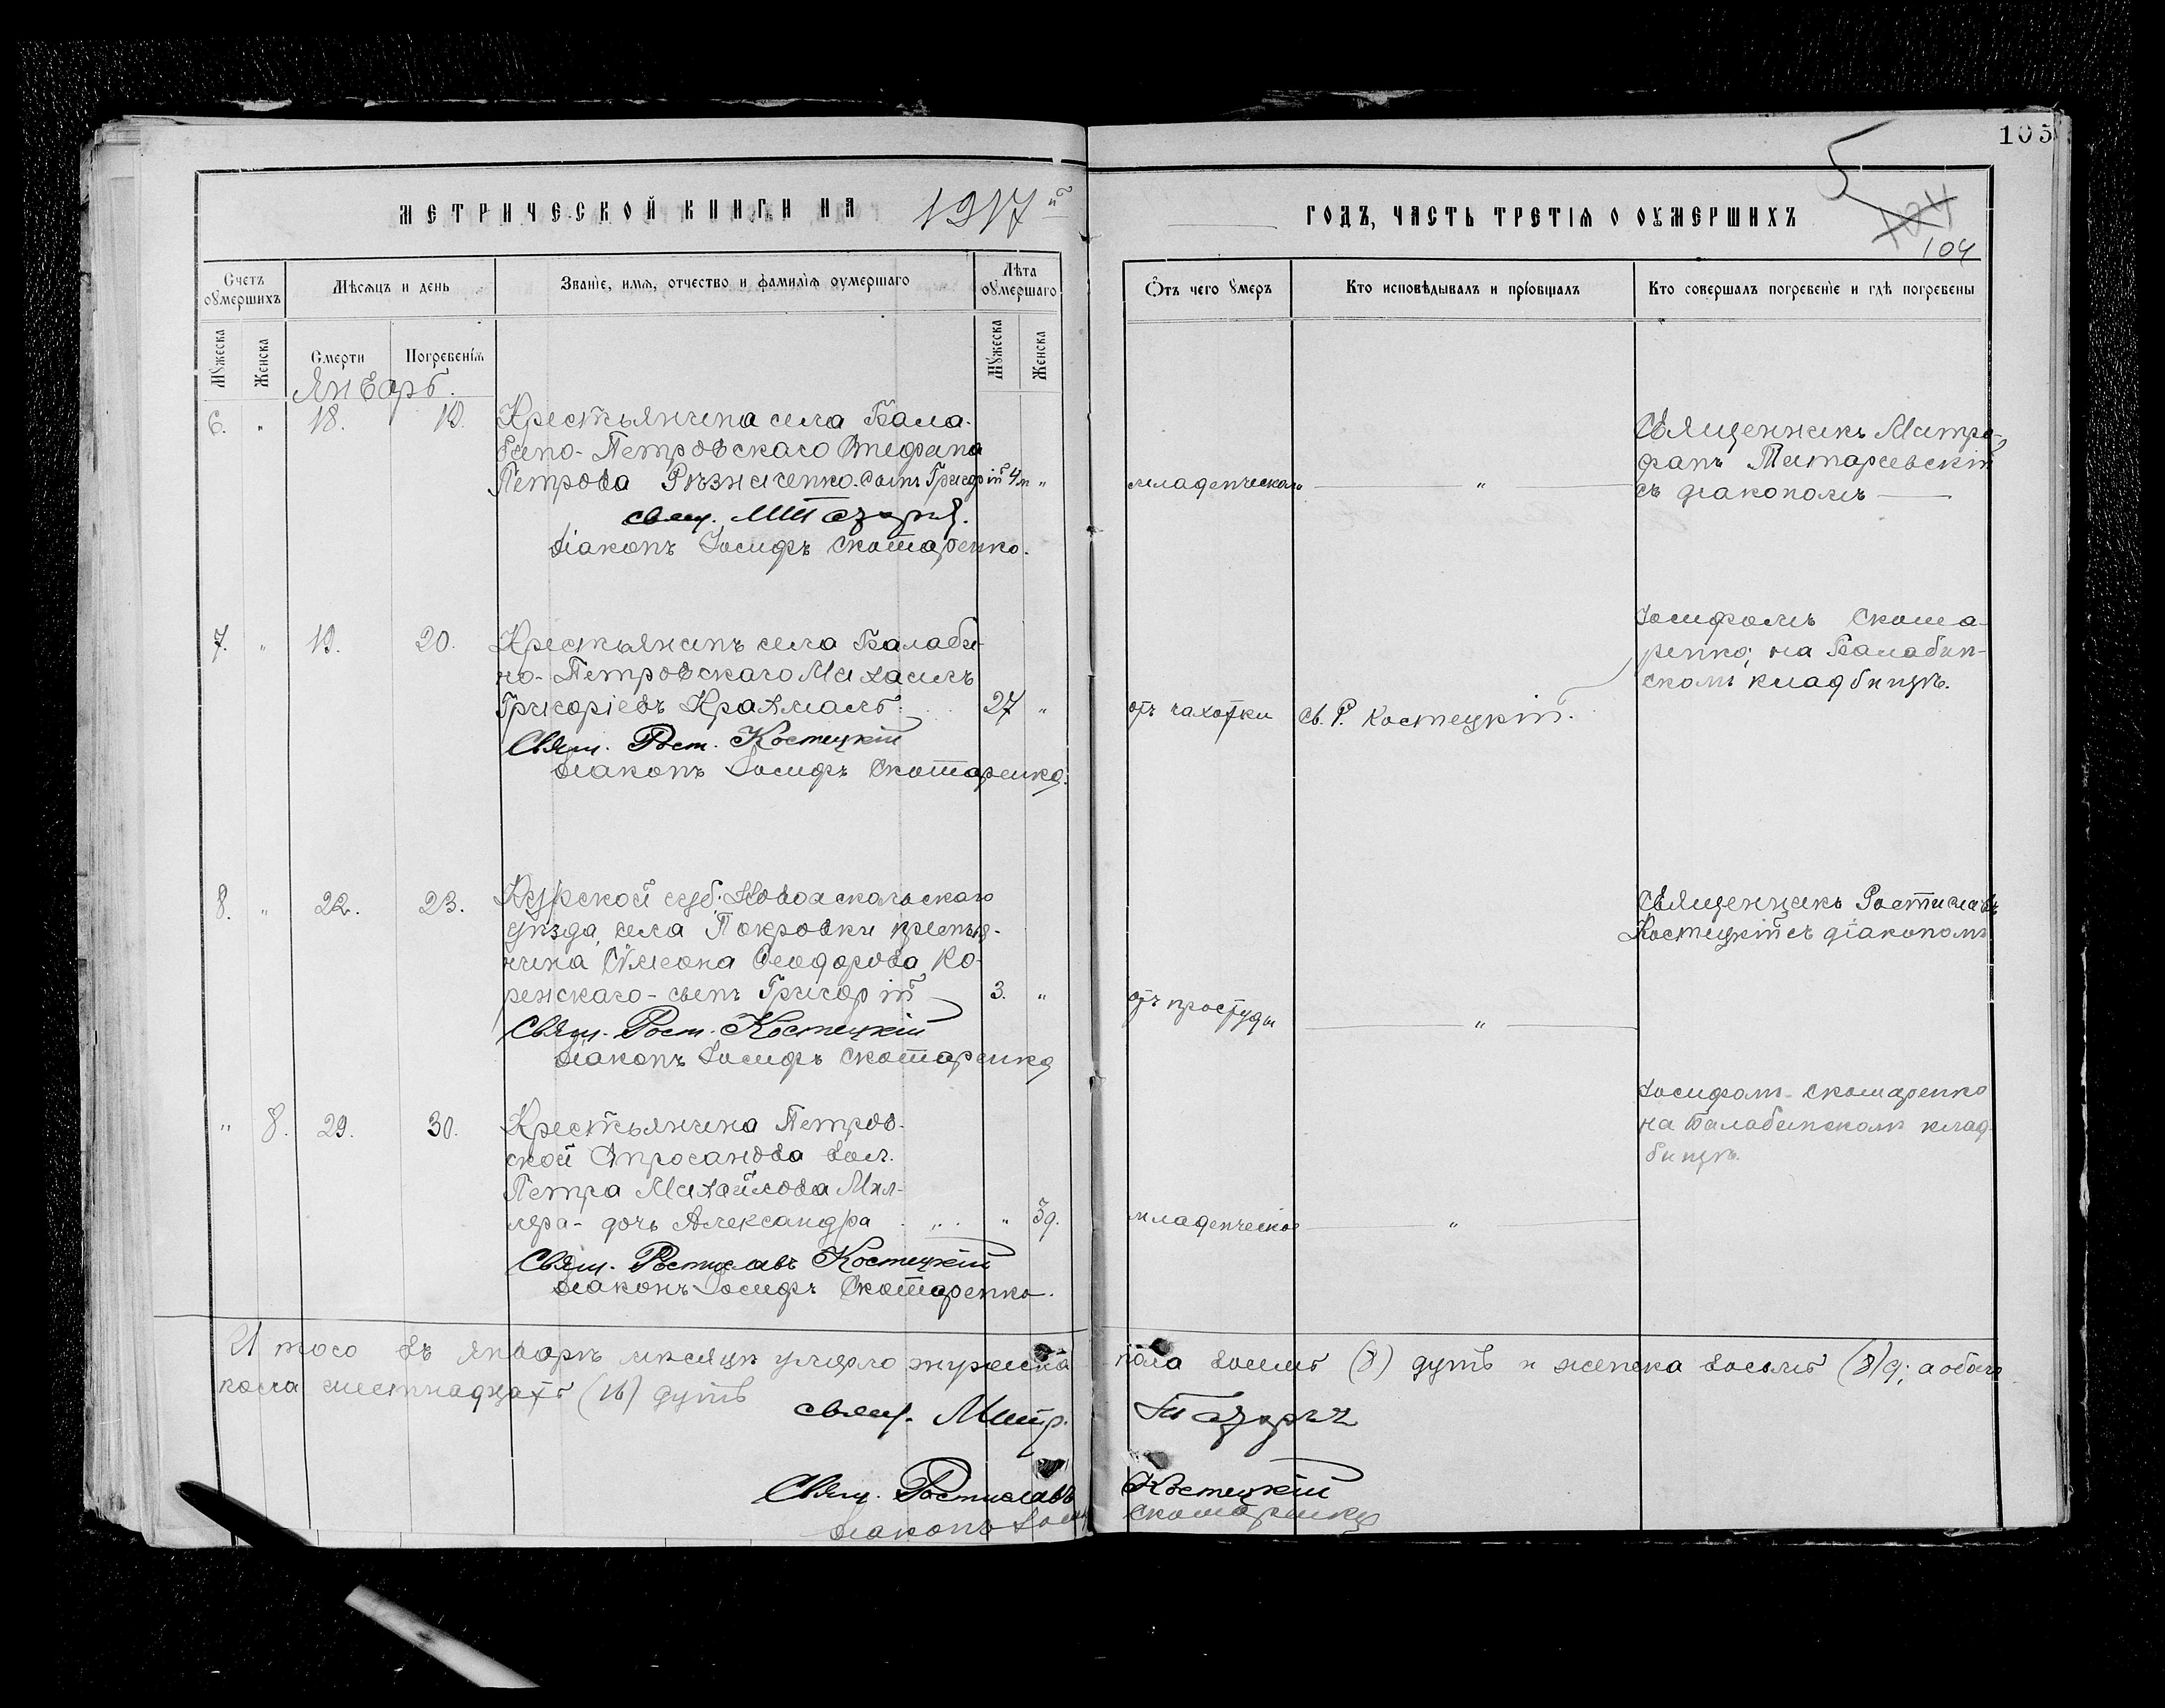 105
5
104
104
МЕТРИЧЕСКОЙ КНИГИ НА 1917й
ГОДЪ, ЧАСТЬ ТРЕТІѦ О ОУМЕРШИХЪ
Счетъ оумершихъ
Мѣсяцъ и день
Званіе, имя, отчество и фамилія оумершаго
Лѣта оумершаго
Ѿтъ чего Умеръ
Кто исповѣдывалъ и пріобщалъ
Кто совершалъ погребеніе и гдѣ погребены
Мужеска
Женска
Смерти
Погребенія
Мужеска
Женска
Январь.
6. " 18. 19. Крестьянина села Бала-
бино-Петровскаго Стефана
Петрова Рѣзниченко сынъ Григорій 4м "
свящ.
діаконъ Іосифъ Скотаренко.
младенческая "
Священникъ Митро-
фанъ
съ діакономъ
7. " 19. 20. Крестьянинъ села Балаби-
но-Петровскаго Михаилъ
Григоріевъ Крахмаль 27 "
Свящ. Рост. Костецкій
діаконъ Іосифъ Скотаренко.
отъ чахотки св. Р. Костецкій.
Іосифомъ Скота-
ренко; на Балабин-
скомъ кладбищѣ.
8. " 22. 23. Курской губ; Новооскольскаго
уѣзда, села Покровки крестья-
нина Симеона Феодорова Ко-
ренскаго - сынъ Григорій 3. "
Свящ. Рост. Костецкій
діаконъ Іосифъ Скотаренко
отъ простуды "
Священникъ Ростиславъ
Костецкій съ діакономъ
" 8. 29. 30. Крестьянина Петров-
ской вол.
Петра Михайлова Мил-
лера - дочь Александра " 3д.
Свящ. Ростиславъ Костецкій
діаконъ Іосифъ Скотаренко.
младенческое "
Іосифомъ Скотаренко
на Балабинскомъ клад-
бищѣ.
Итого въ январѣ мѣсяцѣ умерло мужеска пола восемь (8) душъ и женска восемь (8) д; а обоего
пола шестнадцать (16) душъ
свящ. Митр.
Свящ. Ростиславъ Костецкій
діаконъ Скотаренко